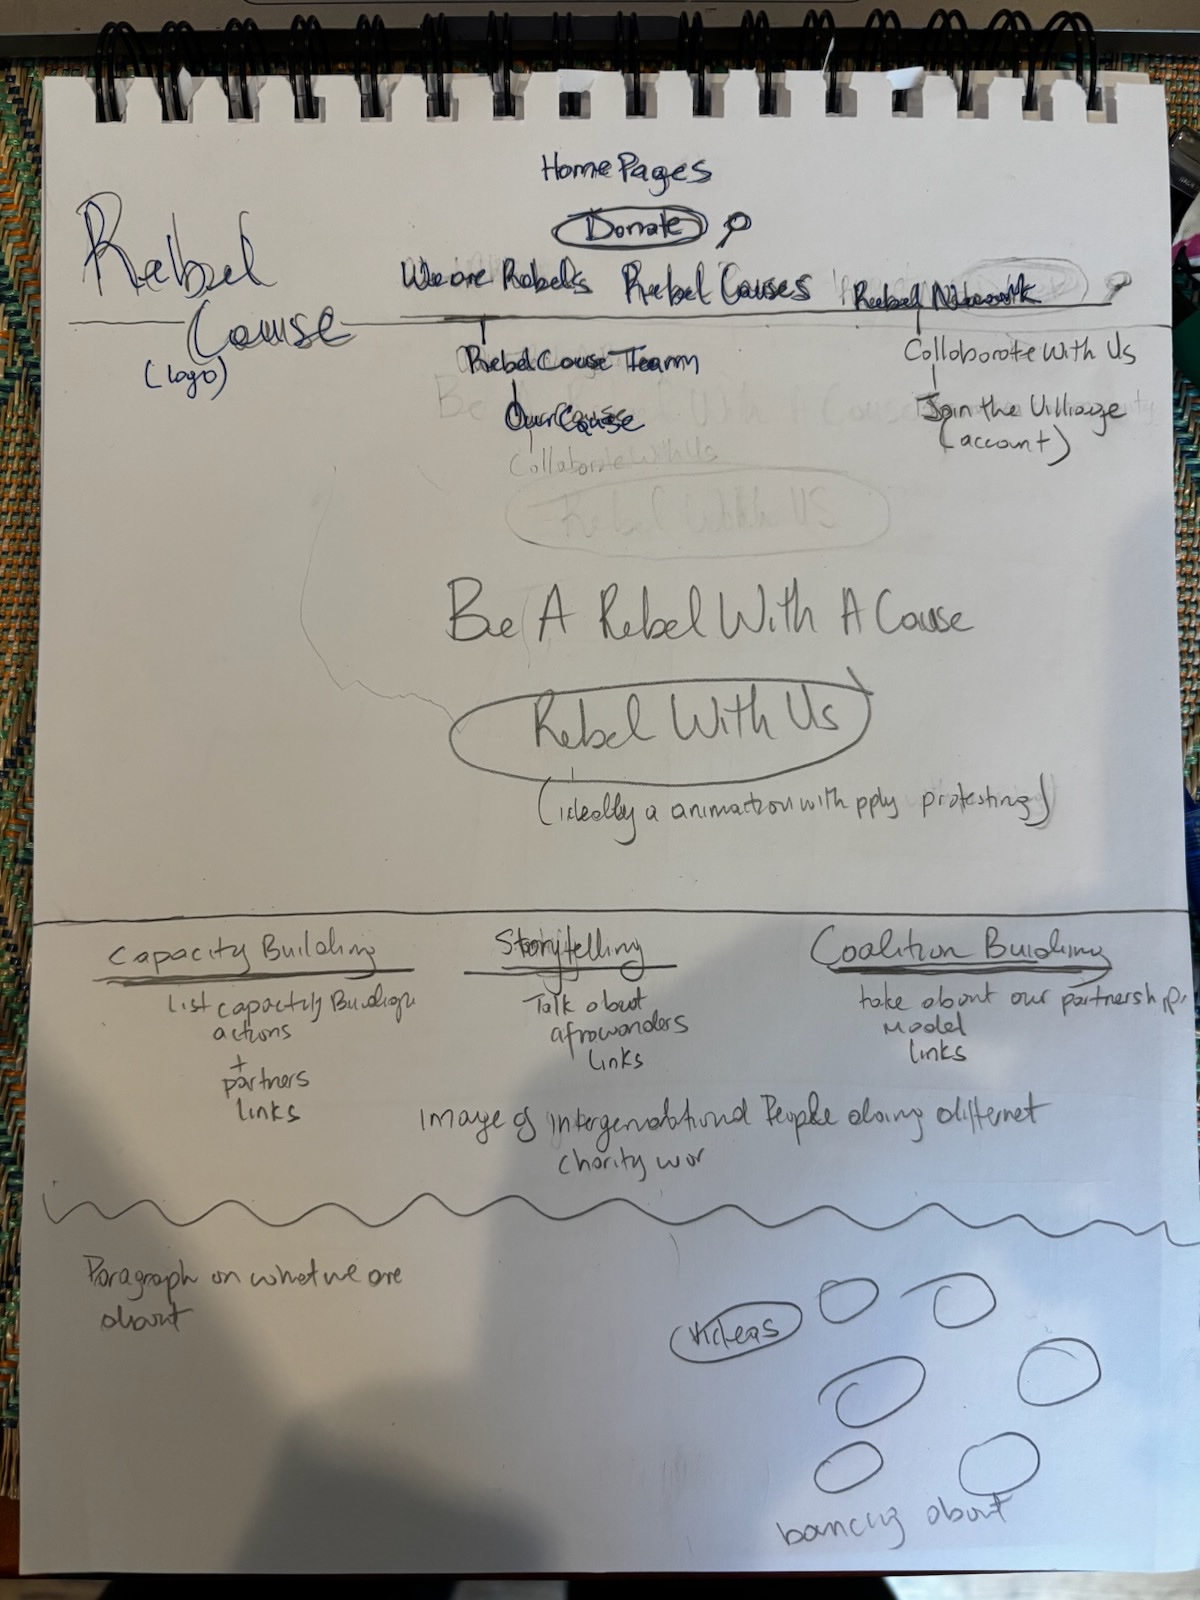 Home Pages
Donate
Rebel
Cause
(logo)
We are Rebels Rebel Causes Rebel Network
Rebel Cause Team
Our Cause
Collaborate With Us
Collaborate With Us
Join the Villiage
(account)
Rebel With US
Be A Rebel With A Cause
Rebel With Us
(ideally a animation with pply protesting)
Capacity Building
List capacity Buildign
actions
+
partners
links
Storytelling
Talk about
afrowanders
links
Coalition Building
take about our partnership
Model
links
Image of intergenerational People doing differnet
charity wor
Paragraph on what we are
about
Videos
about